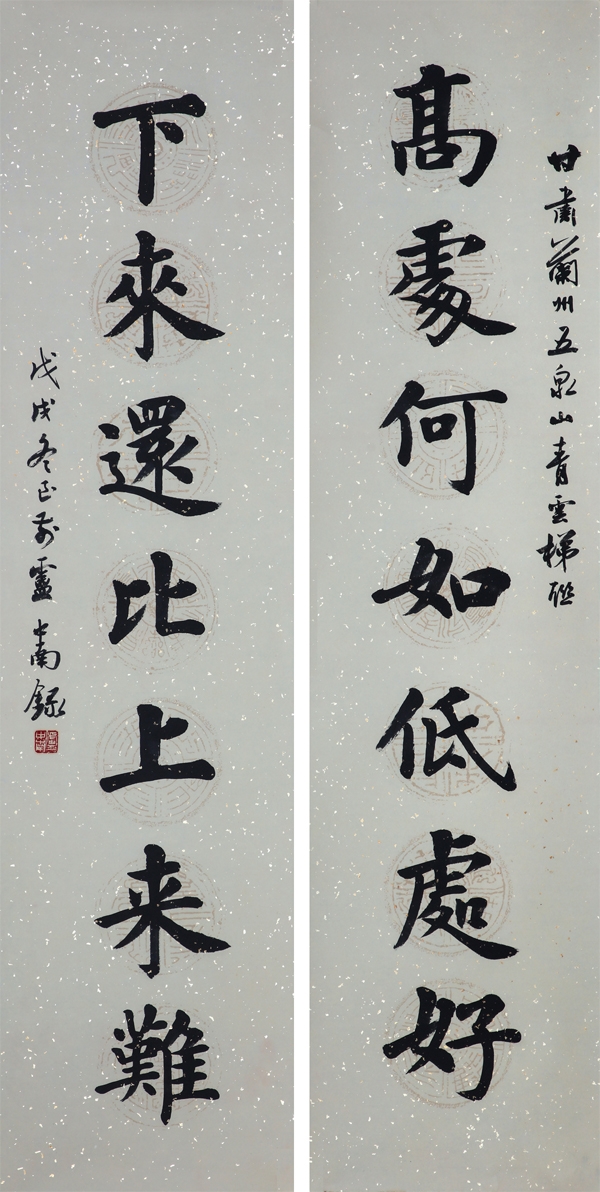 甘肅蘭州五泉山青雲梯聯
高處何如低處好
下來還比上来難
戊戌冬正前盧中南錄